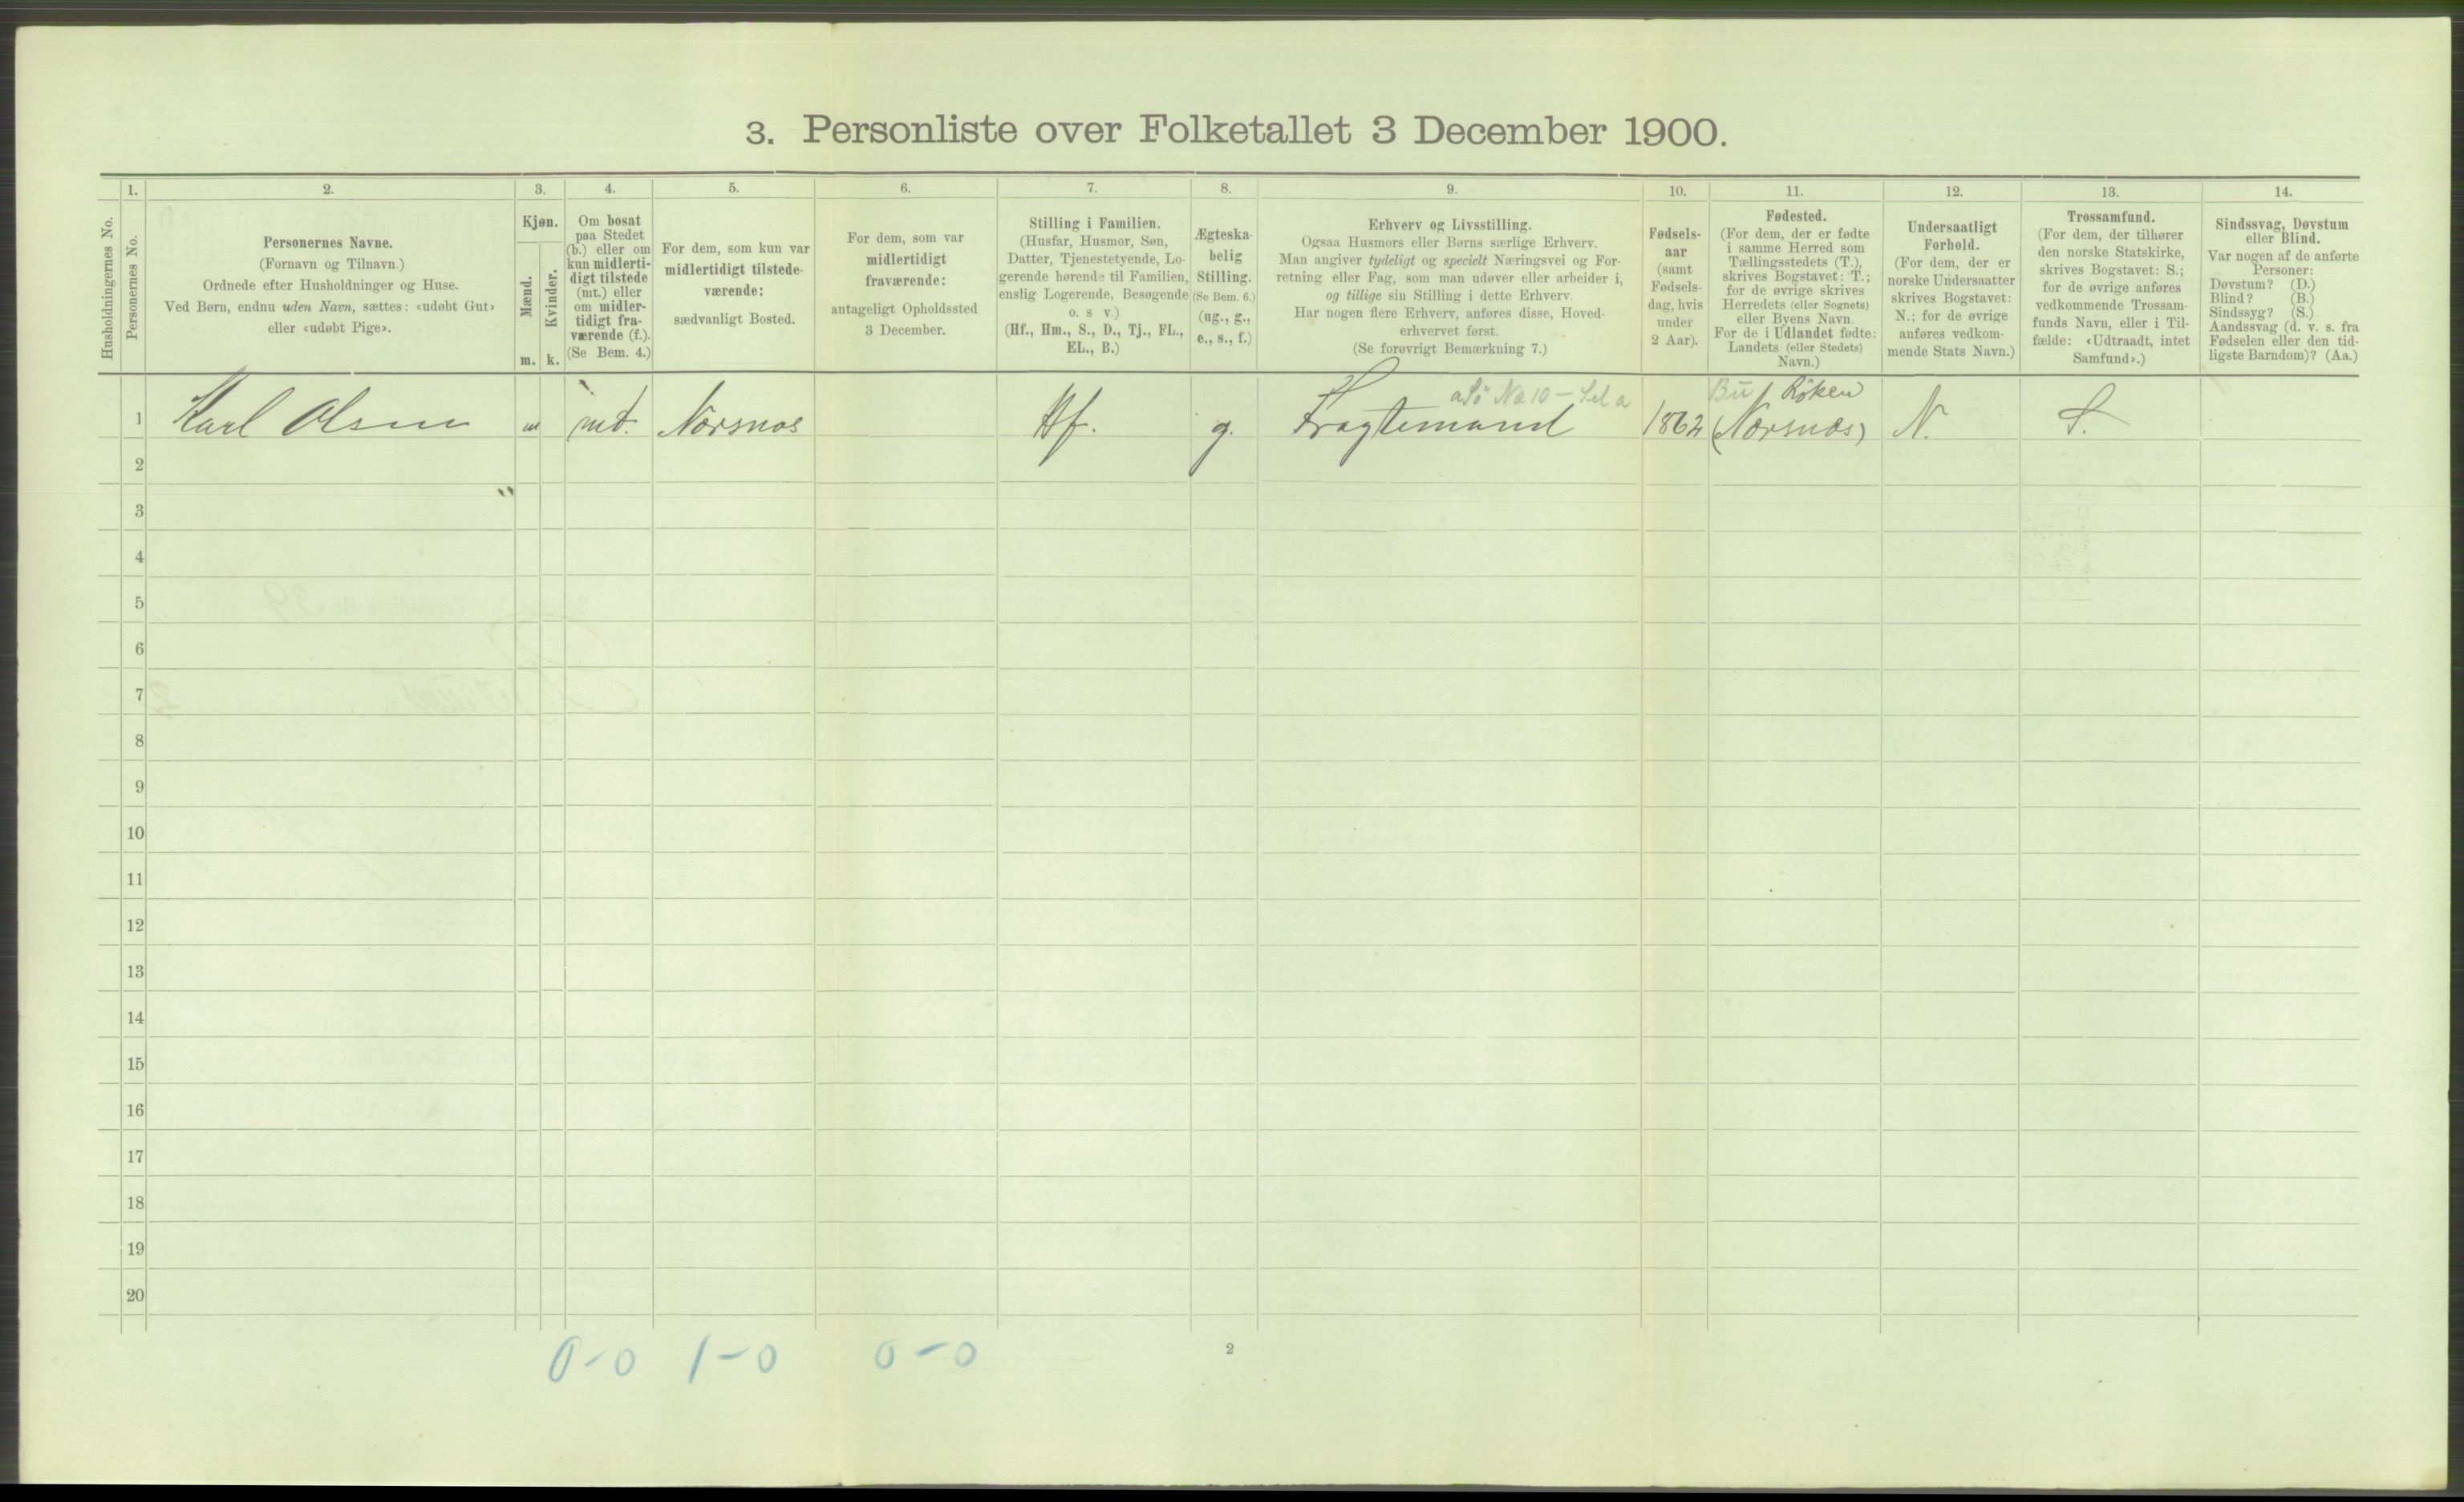 3. Personliste over Folketallet 3 December 1900.
1. 2. 3. 4. 5. 6. 7. 8. 9. 10. 11. 12. 13. 14.
Husholdningernes No.
Personernes No.
Personernes Navne.
(Fornavn og Tilnavn.)
Ordnede efter Husholdninger og Huse.
Ved Børn, endnu uden Navn, sættes: «udøbt Gut»
eller «udøbt Pige».
Kjøn.
Mænd.
Kvinder.
m. k.
Om bosat
paa Stedet
(b.) eller om
kun midlerti-
digt tilstede
(mt.) eller
om midler-
tidigt fra-
værende (f.).
(Se Bem. 4.)
For dem, som kun var
midlertidigt tilstede-
værende:
sædvanligt Bosted.
For dem, som var
midlertidigt
fraværende:
antageligt Opholdssted
3 December.
Stilling i Familien.
(Husfar, Husmor, Søn,
Datter, Tjenestetyende, Lo-
gerende hørende til Familien,
enslig Logerende, Besøgende
o. s v.)
(Hf., Hm., S., D., Tj., FL.,
EL., B.)
Ægteska-
belig
Stilling.
(Se Bem. 6.)
(ug., g.,
e., s., f.)
Erhverv og Livsstilling.
Ogsaa Husmors eller Børns særlige Erhverv.
Man angiver tydeligt og specielt Næringsvei og For-
retning eller Fag, som man udøver eller arbeider i,
og tillige sin Stilling i dette Erhverv.
Har nogen flere Erhverv, anføres disse, Hoved-
erhvervet først.
(Se forøvrigt Bemærkning 7.)
Fødsels-
aar
(samt
Fødsels-
dag, hvis
under
2 Aar).
Fødested.
(For dem, der er fødte
i samme Herred som
Tællingsstedets (T.),
skrives Bogstavet: T.;
for de øvrige skrives
Herredets (eller Sognets)
eller Byens Navn.
For de i Udlandet fødte:
Landets (eller Stedets)
Navn.)
Undersaatligt
Forhold.
(For dem, der er
norske Undersaatter
skrives Bogstavet:
N.; for de øvrige
anføres vedkom-
mende Stats Navn.)
Trossamfund.
(For dem, der tilhører
den norske Statskirke,
skrives Bogstavet: S.;
for de øvrige anføres
vedkommende Trossam-
funds Navn, eller i Til-
fælde: «Udtraadt, intet
Samfund».)
Sindssvag, Døvstum
eller Blind.
Var nogen af de anførte
Personer:
Døvstum? (D.)
Blind? (B.)
Sindssyg? (S.)
Aandssvag (d. v. s. fra
Fødselen eller den tid-
ligste Barndom)? (Aa.)
Bu Röken
1 Karl Olsen m mt. Nærsnæs Hf. g. Fragtemand 1862 (Nærsnæs) N. S.
2
3
4
5
6
7
8
9
10
11
12
13
14
15
16
17
18
19
20
0-0 1-0 0-0
2